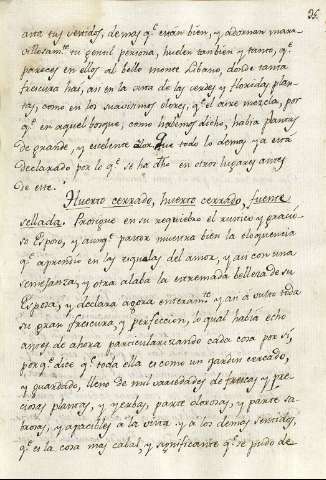 36.
anta tus vestidos, demas qe. estan bien, y adornan mara-
villosamte. tu gentil persona, huelen tanbien y tanto, qe.
pareces en ellos al bello monte Libano, donde tanta
frescura hai, asi en la vista de las verdes y floridas plan-
tas, como en los suavisimos olores, qe. el aire mezcla, por
qe. en aquel bosque, como habemos dicho, habia plantas
de grande, y excelente olor. Que todo lo demas ya está
declarado por lo qe. se ha dho en otros lugares antes
de este.
Huerto cerrado, huerto cerrado, fuente
sellada. Prosigue en su requiebro el rustico y graci-
so Esposo, y aunqe. pastor muestra bien la eloquencia
qe. aprendio en las escuelas del amor, y asi con una
semejanza, y otra alaba la estremada belleza de su
Esposa, y declara agora enteramte. y an à vulto toda
su gran frescura, y perfeccion, lo qual habia echo
antes de ahora particularizando cada cosa por sí,
porqe. dice qe. toda ella es como un jardin cercado,
y guardado, lleno de mil variedades de frescas y pre-
ciosas plantas, y yerbas, parte olorosas, y parte sa-
brosas, y apacibles à la vista y à los demas sentidos,
qe. es la cosa mas cabal, y significante qe. se pudo de-